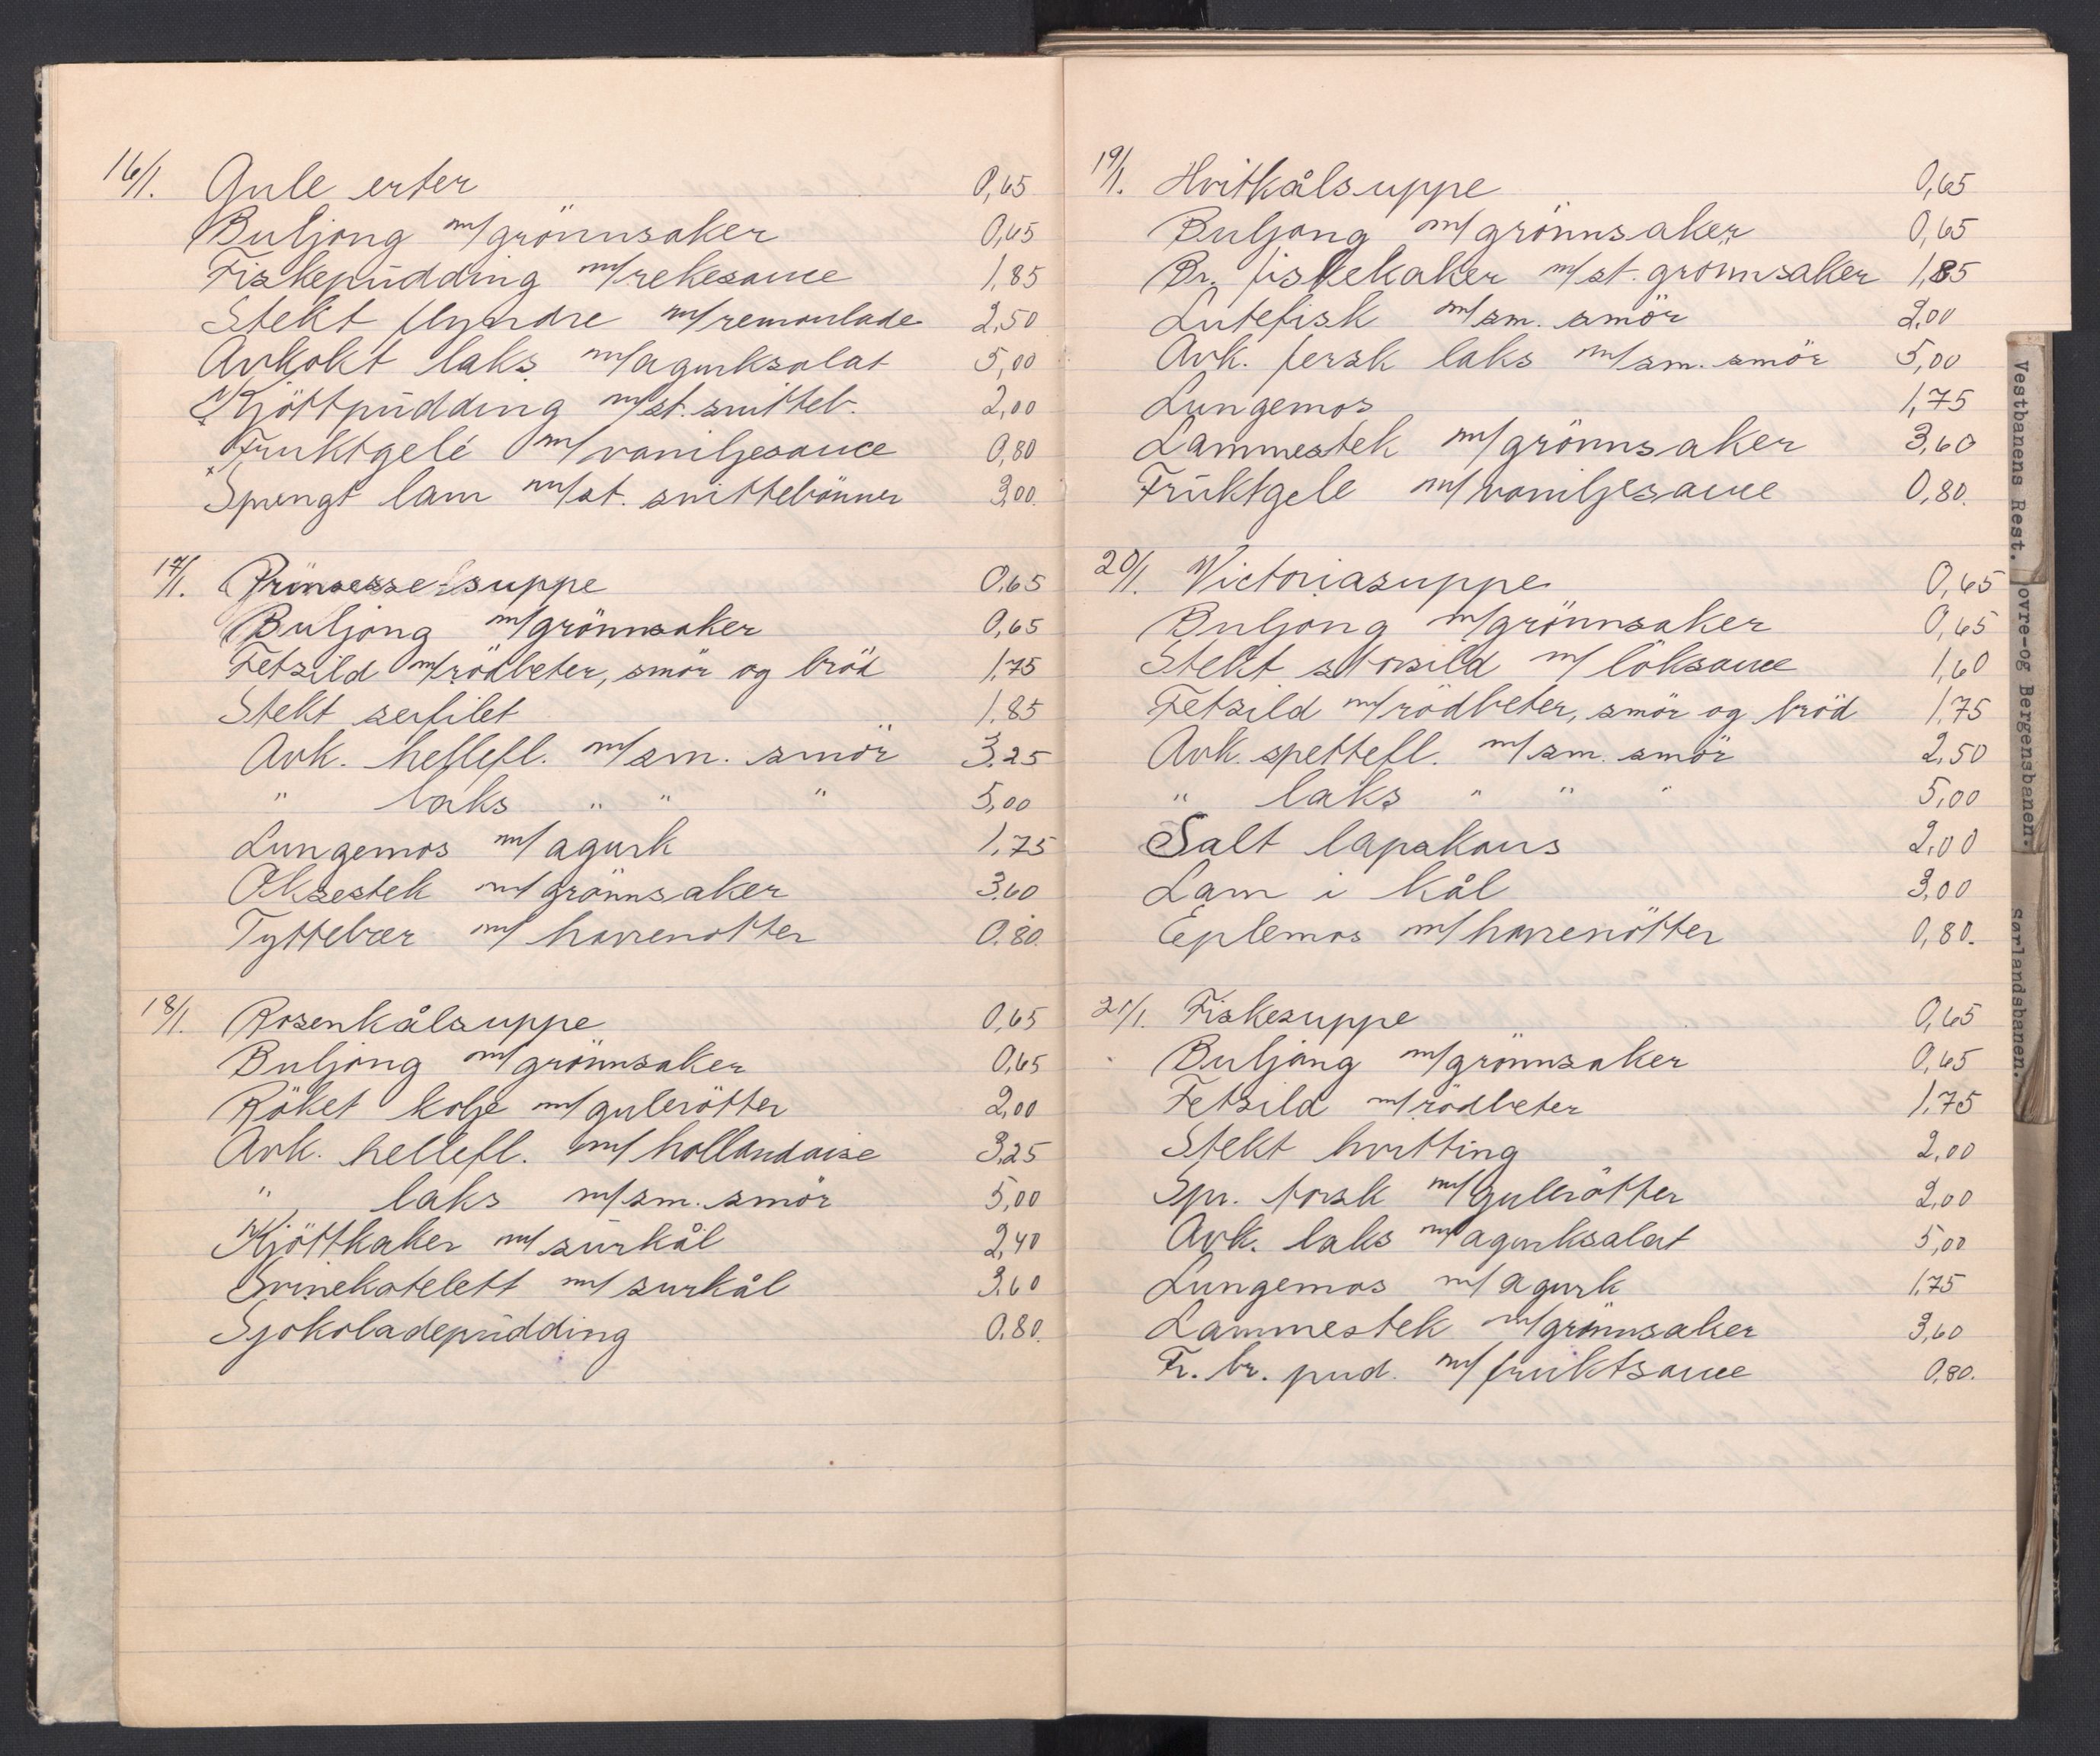 16/1. Gule erter 0,65
Buljong m/grönnsaker 0,65
Fiskepudding m/rekesauce 1,85
Stekt flyndre m/remoulade 2,50
Avkokt laks m/agurksalat 5,00
Kjöttpudding m/st. snitteb. 2,00
Fruktgelé m/vaniljesauce 0,80
Sprengt lam m/st. snittebönner 3,00.
17/1. Prinsesse-suppe 0.65
Buljong m/grönnsaker 0,65
Fetsild m/rödbeter, smör og bröd 1,75
Stekt seifilet 1.85
Avk. hellefl. m/sm. smör 3.25
" laks " " " 5,00
Lungemos m/agurk 1.75
Oksestek m/grönnsaker 3.60
Tyttebær m/havrenötter 0.80.
18/1. Rosenkålsuppe 0,65
Buljong m/grönnsaker 0,65
Röket kolje m/gulerötter 2,00
Avk. hellefl. m/hollandaise 3,25
" laks m/sm. smör 5,00
Kjöttkaker m/surkål 2,40
Svinekotelett m/surkål 3.60
Sjokoladepudding 0.80.
19/1. Hvitkålsuppe 0,65
Buljong m/grönnsaker 0,65
Br. fiskekaker m/st. grönnsaker 1,85
Lutefisk m/sm. smör 2,00
Avk. fersk laks m/sm. smör 5,00
Lungemos 1,75
Lammestek m/grönnsaker 3,60
Fruktgele m/vaniljesauce 0,80.
20/1. Victoriasuppe 0,65
Buljong m/grönnsaker 0,65
Stekt storsild m/löksauce 1,60
Fetsild m/rödbeter, smör og bröd 1,75
Avk. spettefl. m/sm. smör 2,50
" laks " " " 5,00
Salt lapskaus 2,00
Lam i kål 3,00
Eplemos m/havrenötter 0,80.
21/1. Fiskesuppe 0,65
Buljong m/grönnsaker 0,65
Fetsild m/rödbeter 1.75
Stekt hvitting 2,00
Spr. torsk m/gulerötter 2,00
Avk. laks m/agurksalat 5,00
Lungemos m/agurk 1,75
Lammestek m/grönnsaker 3,60
Fr. br. pud. m/fruktsauce 0,80.
Vestbanens Rest.
ovre-og Bergensbanen.
Sørlandsbanen.